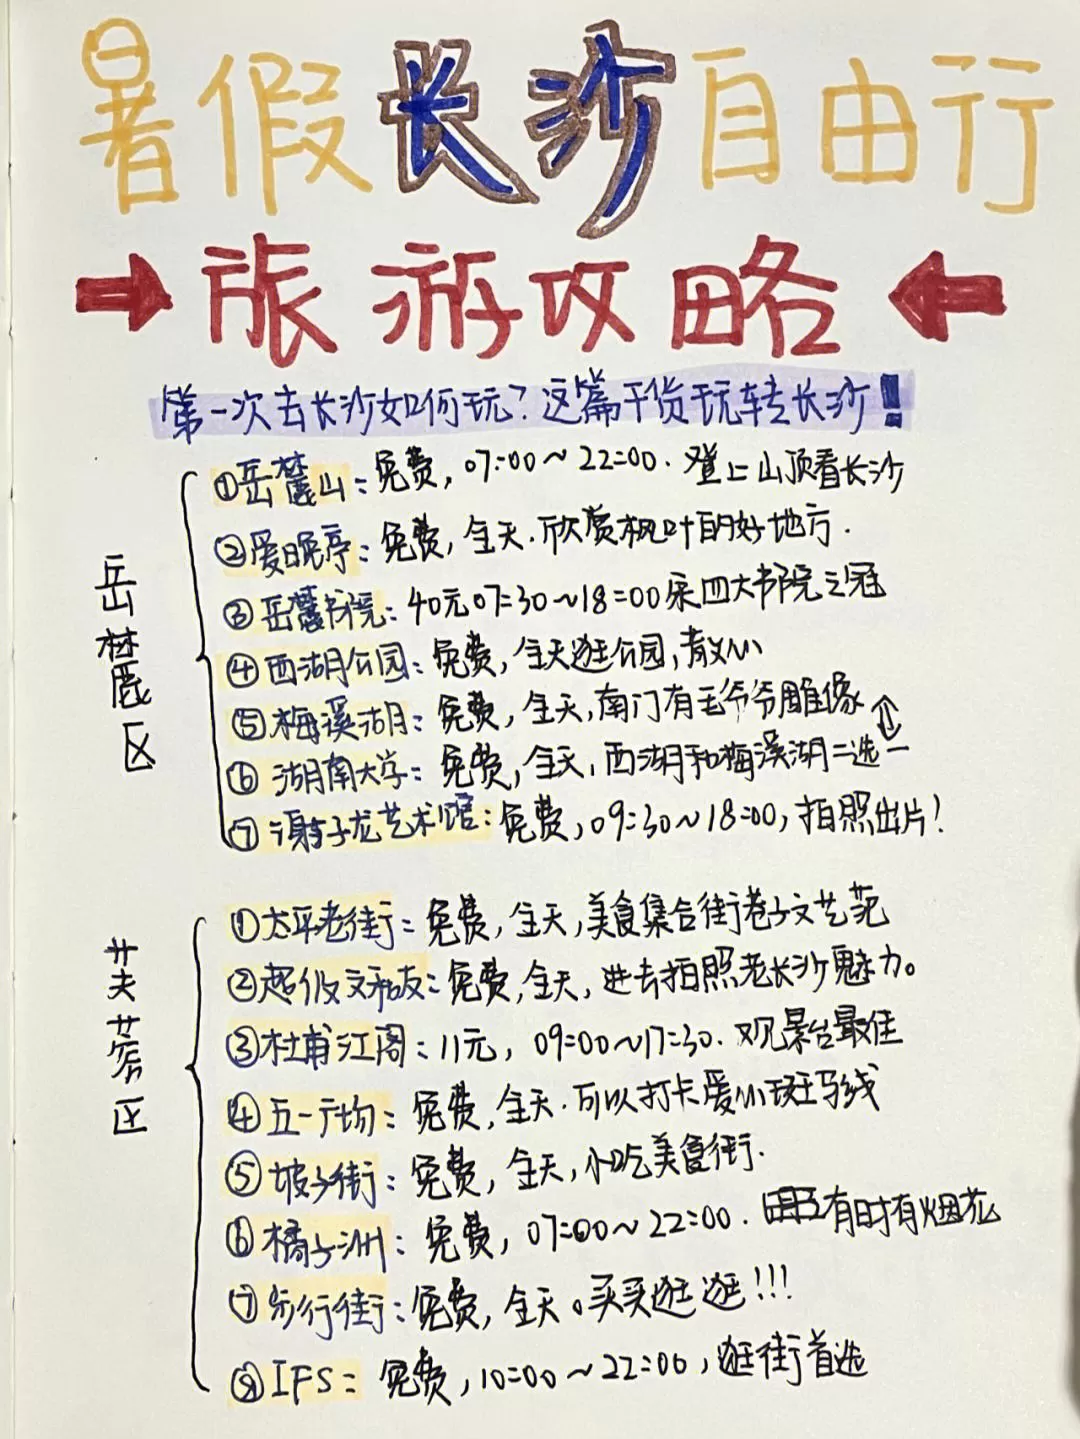 暑假长沙自由行
旅游攻略
第一次去长沙如何玩?这篇干货玩转长沙!
岳麓区
①岳麓山:免费,07:00~22:00.登上山顶看长沙
②爱晚亭:免费,全天.欣赏枫叶的好地方.
③岳麓书院:40元07:30~18:00宋四大书院之冠
④西湖公园:免费,全天逛公园,散心
⑤梅溪湖:免费,全天,南门有毛爷爷雕像
⑥湖南大学:免费,全天,西湖和梅溪湖二选一
⑦谢子龙艺术馆:免费,09:30~18:00,拍照出片!
芙蓉区
①太平老街:免费,全天,美食集合街巷子文艺范
②超级文和友:免费,全天,进去拍照老长沙魅力。
③杜甫江阁:11元,09:00~17:30.观景台最佳
④五一广场:免费,全天.可以打卡爱心斑马线
⑤坡子街:免费,全天,小吃美食街.
⑥橘子洲:免费,07:00~22:00.有时有烟花
⑦步行街:免费,全天。买买逛逛!!!
⑧IFS:免费,10:00~22:00,逛街首选